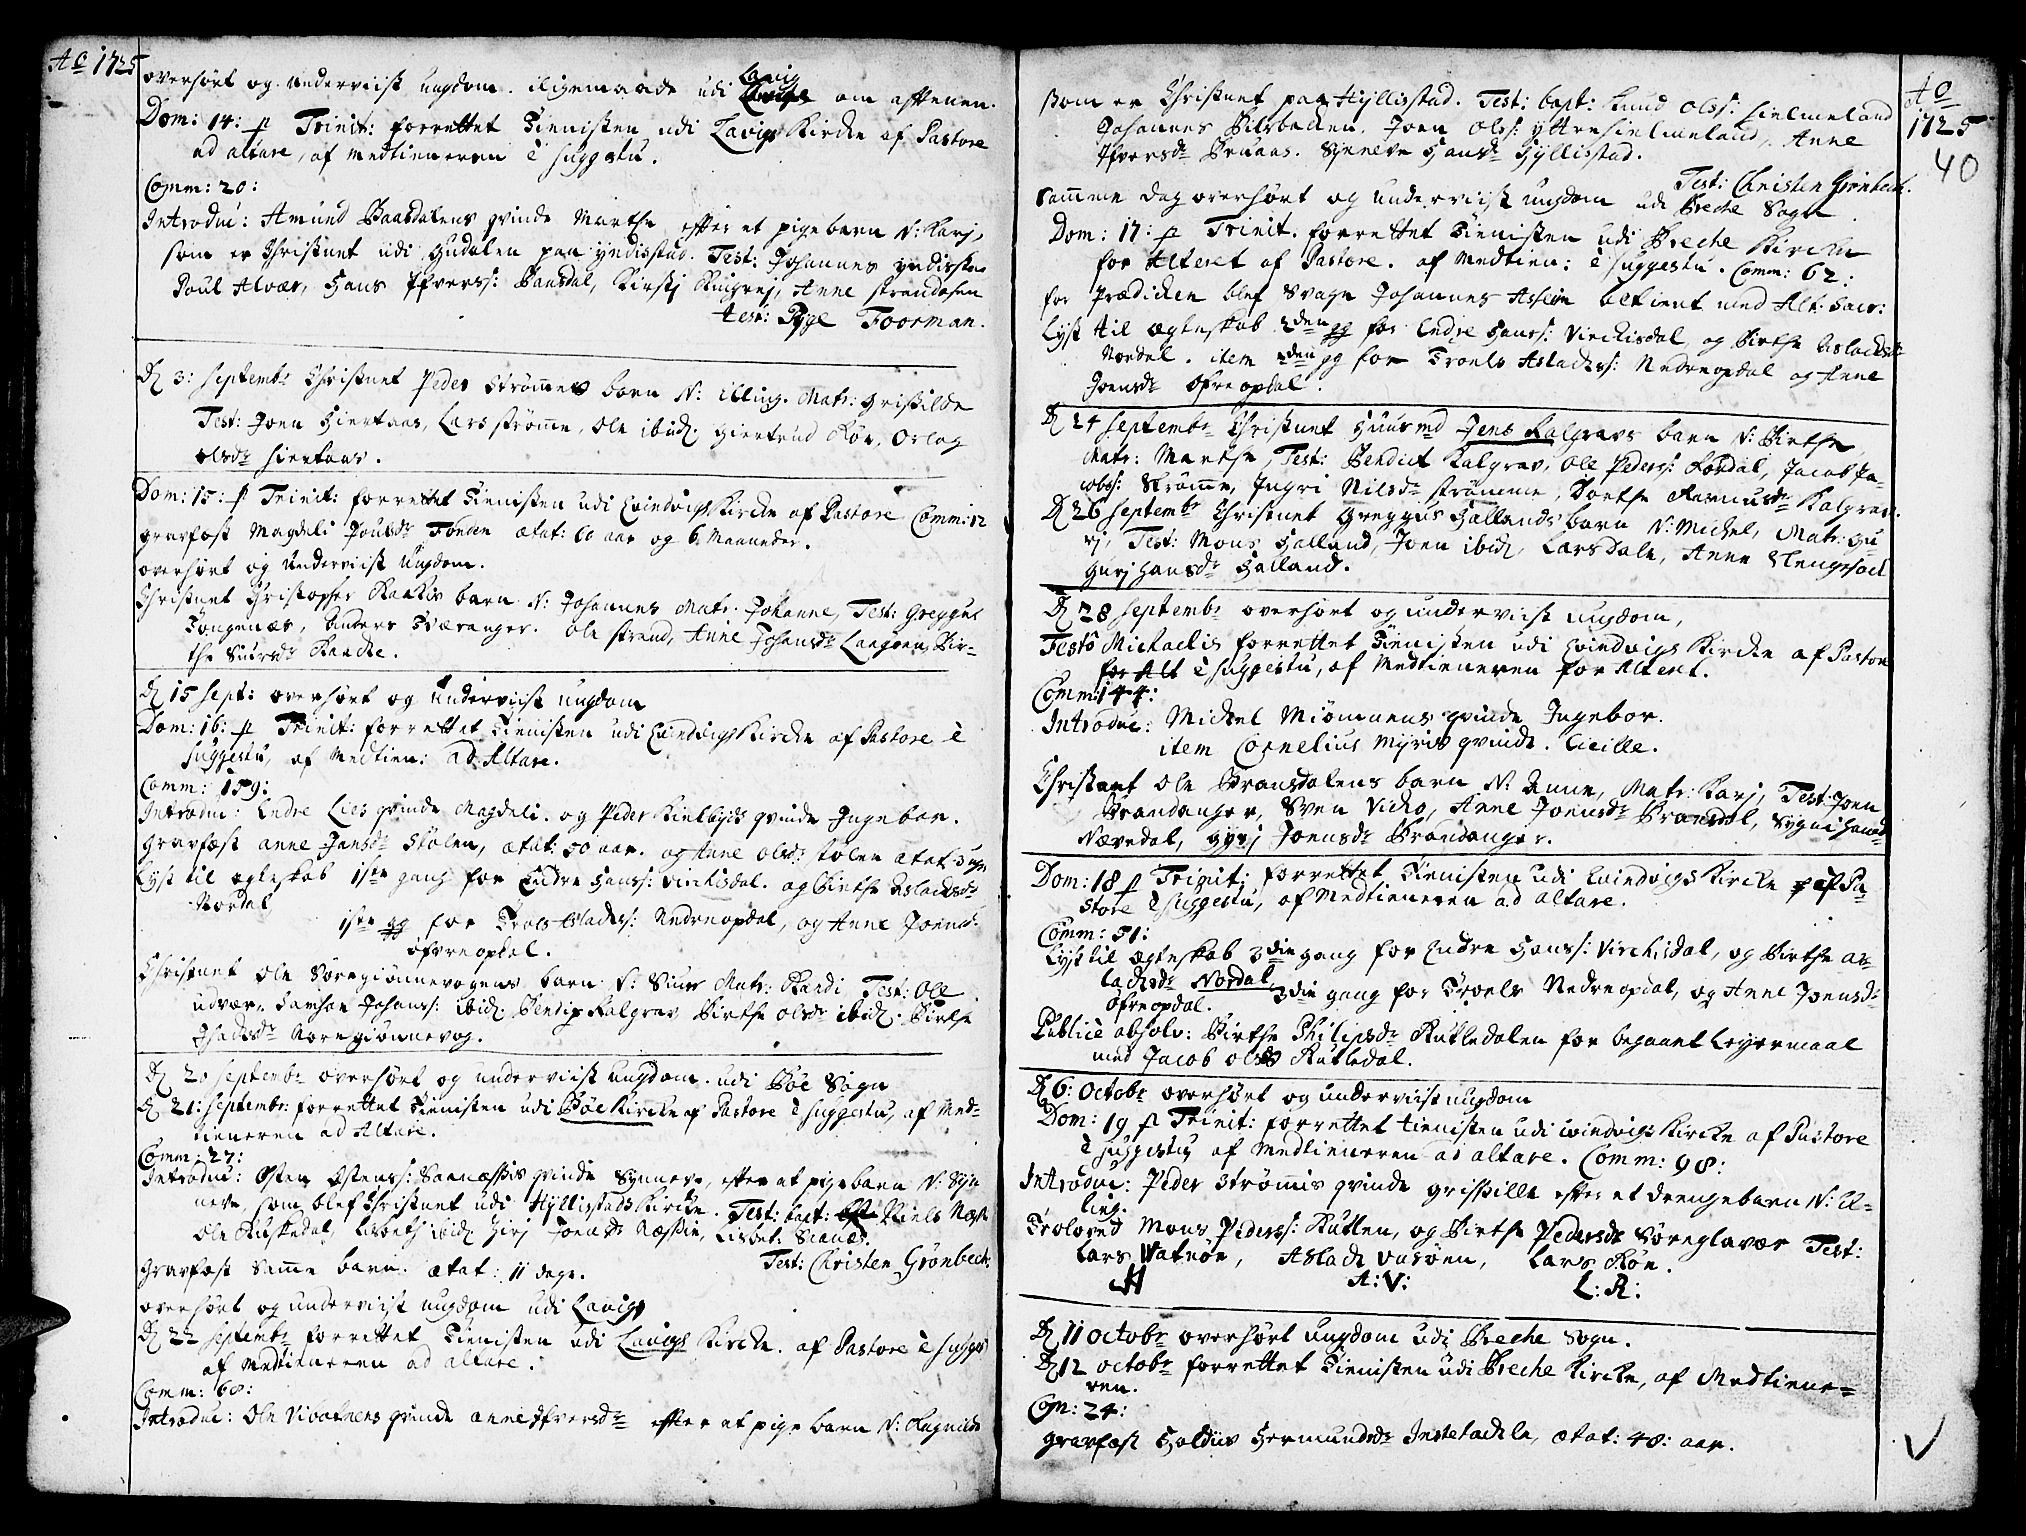 Ao 1725
overhørt og underviist ungdom. iligemaade udi Lavig om afftenen.
Dom: 14: p Trinit: forrettet Tienisten udi Lavigs Kirche af Pastore
ad altare, af medtieneren è suggestu.
Comm: 20:
Introduc: Amund Baardalens qvinde Marthe efter et pigebarn N: Karj,
som er Christnet udi Gudalen paa yndisstad. Test: Johannes yndisstad
Poul Alvær, Hans Ifverss: Baardal, Kirstj, Anne strandosen
test: Pyge Foorman.
D 3: Septembr Christnet Peder Strømmes barn N: Elling. Matr: Grissilde
Test: Joen Hiertaas, Lars strømme, Ole ibid, Giertrud Røn, Orlog
olsdr hiertaas.
Dom: 15: p Trinit: forrettet Tienisten udi Evindvigs Kirche af Pastore Comm: 12
gravfæst Magdeli Poulsdr Fonden ætat: 60 aar og 6 Maaneder.
overhørt og underviist Ungdom.
Christnet Christopher Raakes barn N: Johannes Matr. Johanne, Test: Greggus
Tongenær, Anders Tværanger. Ole strand, Anne Johansdr Langøen, Bir-
the Siursdr Raache.
D 15 Sept: overhørt og Underviist ungdom
Dom: 16: p Trinit: forrettet Tienisten udi Evindvigs Kirche af Pastore è
suggestu, af Medtien: ad Altare.
Comm: 159:
Introduc: Endre Lies qvinde Magdeli. og Peder Kielbyes qvinde Ingebor.
gravfæst anne Jansdr Stølen, ætat: 50 aar. og Anne olsdr stølen ætat: 3 ugr
Lyst til egteskab 1ste gang for Endre Hanss: Virchisdal. og Birthe Aslachsdr
Nordal
1ste gg for Troels Aslachss: Nedreopdal, og Anne Joensdr
ofreopdal.
Christnet Ole Nøregiønnevogens barn N: Siur Matr: Randi Test: Ole
udvær, Samson Johanss: ibid. Bendix Kalgrav Birthe olsdr ibid. Birthe
Nøregiønnevog.
D 20 Septembr overhørt og underviist ungdom. udi Bøe Sogn
D 21: Septembr: forrettet Tienisten udi Bøe Kirche af Pastore è suggestu, af Med-
tieneren ad Altare.
Comm: 27:
Introduc: Østen Østenss: qvinde Synneve, efter et pigebarn N: Syn
neve, som blef Christnet udi Hyllistads Kirche. Test: bapt: Niels
Ole Risnedal, Lisbeth ibid
Gravfæst Samme barn. ætat: 11 dage. Test: Christen Grønbech.
overhørt og underviist ungdom udi Lavig
D 22 Septembr forrettet Tienisten udi Lavigs Kirche. af Pastore è sugges
af Medtieneren ad altare.
Comm: 68:
Introduc: Ole qvinde anne Ifversdr effter et pige barn N: Ragnilde
Ao
1725
40
som er Christnet paa Hyllistad. Test: bapt: Knud Olss: hielmeland
Johannes Bilsbachen, Joen Olss: yttrehielmeland, Anne
Ifversdr Bruaas. Synneve Hansdr Hyllistad.
Test: Christen Grønbech.
samme dag overhørt og underviist ungdom udi Breche Sogn.
Dom: 17: p Trinit. forrettet Tienisten udi Breche Kirche
for Alteret af Pastore. af Medtien: è suggestu. Comm: 62:
for Prædicken blef Svage Johannes Asheim betient med Alt: Sacr:
Lyst til egteskab 2den gg for Endre Hanss: Virchisdal, og Birthe Aslachsdr
Nordal. item 2den gg for Troels Aslachss: Nedreopdal og Anne
Joensdr Ofreopdal.
D 24 Septembr Christnet Huusmd Jens Kalgravs barn N: Birthe
Matr: Marthe, Test: Bendict Kalgrav, Ole Pederss: Kordal, Jacob Ja-
cobss: Strømme, Ingri Nilsdr strømme, Dorthe Rasmusdr Kalgrav.
D 26 Septembr Christnet Greggus Hallands barn N: Michel, Matr: Gu
rj, Test: Mons Halland, Joen ibid, Lars Dale, Anne
Gurj Hansdr Halland.
D 28 Septembr overhørt og underviist ungdom,
Festo Michaelis forrettet Tienisten udi Evindvigs Kirche af Pastore
for Alt è suggestu, af Medtieneren for Alteret.
Comm: 144:
Introduc: Michel Miømmens qvinde Ingebor.
item Cornelius Myris qvinde. Cicille.
Christnet Ole Bransdalens barn N: Anne, Matr: Karj, Test: Joen
Brandanger, Sven Vicho, Anne Joensdr Bransdal, Sygni Hansdr
Nævedal, Gyrj Joensdr Brandanger.
Dom: 18 p Trinit: forrettet Tienisten udi Evindvigs Kirche af Pa-
store è suggestu, af Medtieneren ad altare.
Comm: 51:
Lyst til egteskab 3die gang for Endre Hanss: Virchisdal, og Birthe As-
lachsdr Nordal, 3die gang for Troels Nedreopdal, og Anne Joensdr
Ofreopdal.
Publicè absolv: Birthe Philipsdr Rutledalen for begaaet Leyermaal
med Jacob olss Rutledal.
D 6: Octobr overhørt og underviist ungdom
Dom: 19 p Trinit: forrettet tienisten udi Evindvigs Kirche af Pastore
è suggestu af Medtieneren ad altare. Comm: 98:
Introduc: Peder Strømmis qvinde grissille efter et drengebarn N: El-
ling.
Trolovet Mons Pederss: Rutlen, og Birthe Pedersdr Nøreglavær Test:
Lars Vatnøe, Aslach Vasøen, Lars Røn.
A: V: L: R:
D 11 octobr overhørt ungdom udi Breche Sogn.
D 12 octobr forrettet Tienisten udi Breche Kirche, af Medtiene-
ren.
Com: 24:
gravfæst Holdiis Germundsdr Instetachle, ætat: 48: aar.